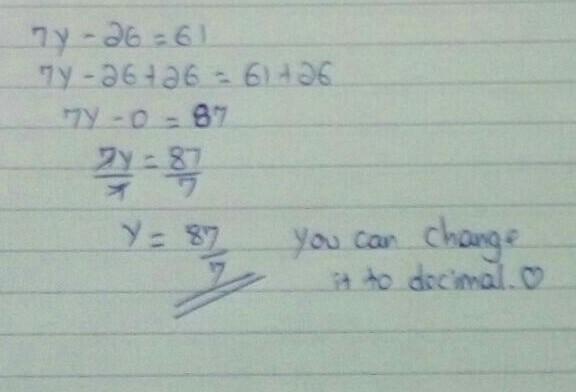 7y - 26 = 61
7y - 26 + 26 = 61 + 26
7y - 0 = 87
7y/7 = 87/7
y = 87/7 you can change
it to decimal. ♡